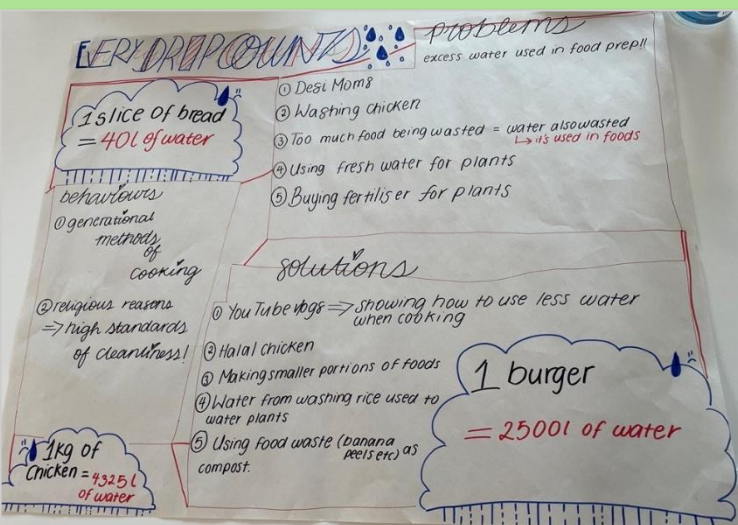 EVERY DROP COUNTS
problems
excess water used in food prep!!
1 slice of bread
= 40l of water
① Desi Moms
② Washing chicken
③ Too much food being wasted = water also wasted
↳ it's used in foods
④ Using fresh water for plants
⑤ Buying fertiliser for plants
behaviours
① generational
methods
of
cooking
② religious reasons
⇒ high standards
of cleanliness!
solutions
① YouTube vlogs ⇒ showing how to use less water
when cooking
② Halal chicken
③ Making smaller portions of foods
④ Water from washing rice used to
water plants
⑤ Using food waste (banana
peels etc) as
compost.
1kg of
Chicken = 4325 l
of water
1 burger
= 2500l of water